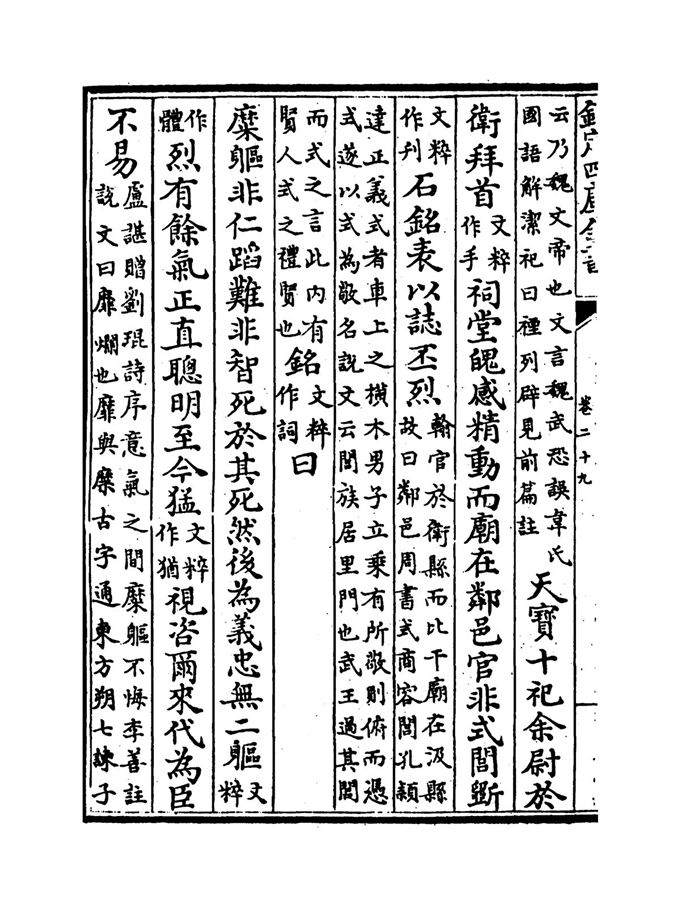 欽定四庫全書
卷二十九
云乃魏文帝也文言魏武恐誤韋氏
國語解潔祀曰禋列辟見前篇註
天寶十祀余尉於
衛拜首
文粹
作手
祠堂魄感精動而廟在鄰邑官非式閭斵
文粹
作刋
石銘表以誌丕烈
翰官於衛縣而比干廟在汲縣
故曰鄰邑周書式商容閭孔穎
達正義式者車上之橫木男子立乗有所敬則俯而憑
式遂以式為敬名説文云閭族居里門也武王過其閭
而式之言此内有
賢人式之禮賢也
銘
文粹
作詞
曰
糜軀非仁蹈難非智死於其死然後為義忠無二軀
文
粹
作
體
烈有餘氣正直聰明至今猛
文粹
作猶
視咨爾來代為臣
不易
盧諶贈劉琨詩序意氣之間糜軀不悔李善註
説文曰靡爛也靡與糜古字通東方朔七諫子